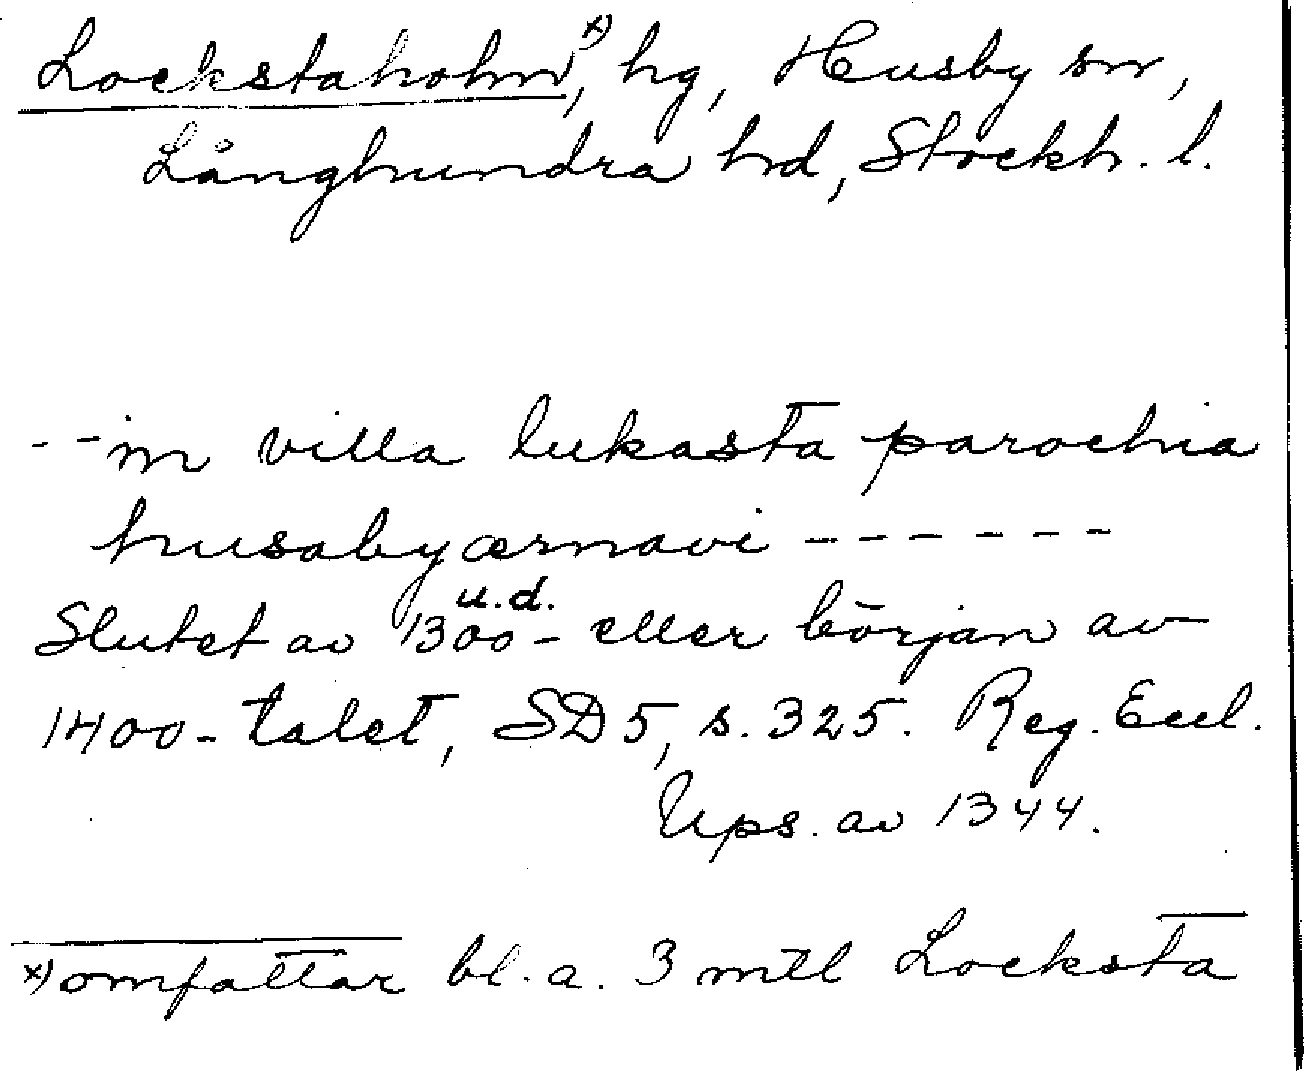 Lockstaholm x), hg, Husby sn,
Långhundra hd, Stockh. l.
--in villa lukasta parochia
husabyærnavi ------
u.d.
Slutet av 1300- eller början av
1400-talet, SD 5, s. 325. Reg. Eccl.
Ups. av 1344.
x) omfattar bl. a. 3 mtl Locksta